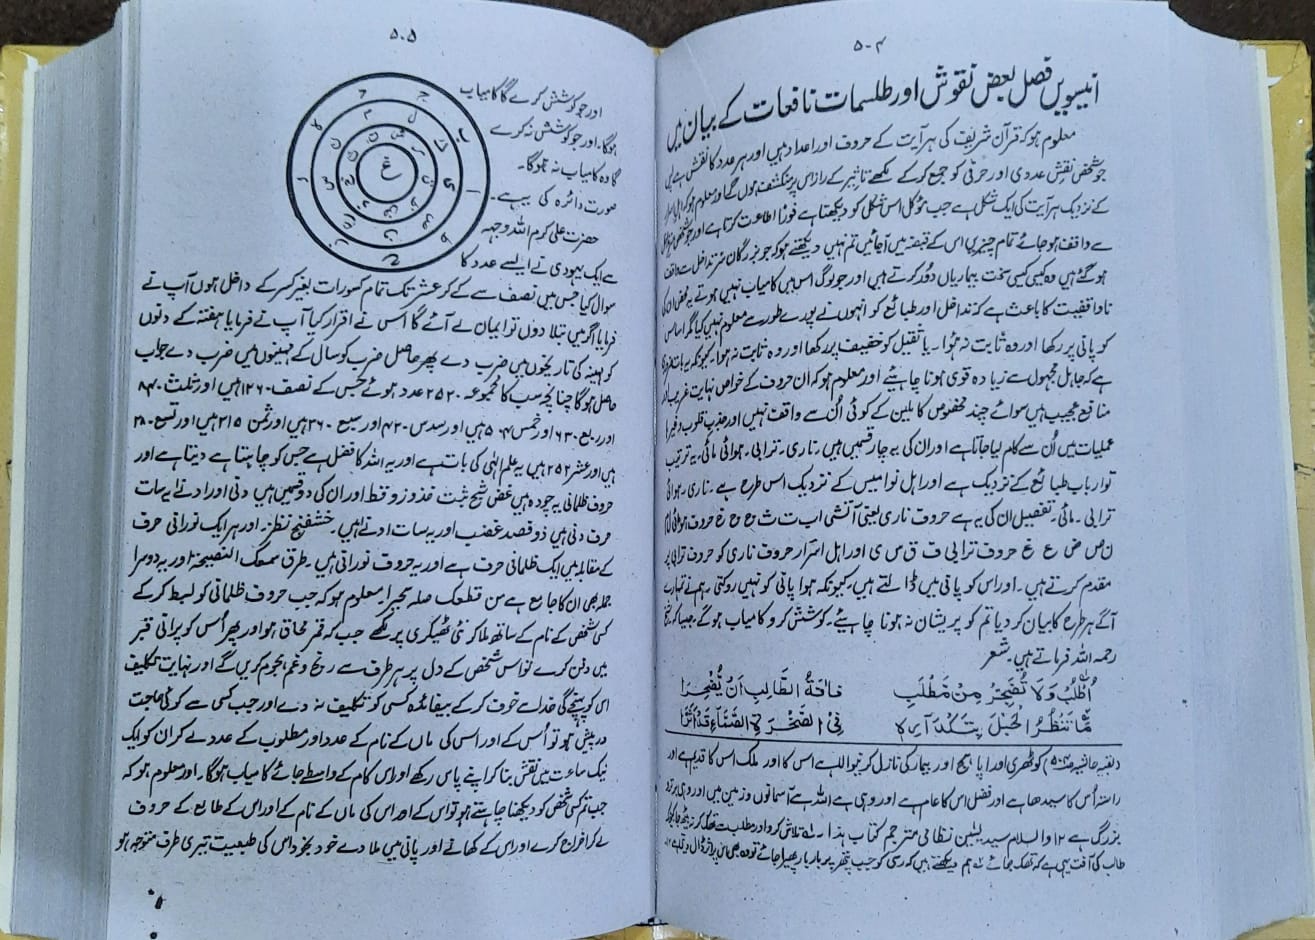 ۵۰۴
انیسویں فصل بعض نقوش اور طلسمات نافعات کے بیان میں
معلوم ہو کہ قرآن شریف کی ہر آیت کے حروف اور اعداد ہیں اور ہر عدد کا نقش ہے
جو شخص نقش عددی اور حرفی کو جمع کر کے لکھے تاثیر کے راز اس پر منکشف ہوں گے اور معلوم ہو کہ
کے نزدیک ہر آیت کی ایک شکل ہے جب مؤکل اس شکل کو دیکھتا ہے فوراً اطاعت کرتا ہے اور جو شخص
سے واقف ہو جائے تمام چیزیں اس کے قبضہ میں آ جائیں تم نہیں دیکھتے ہو کہ جو بزرگان تداخل سے واقف
ہو گئے ہیں وہ کیسی کیسی سخت بیماریاں دور کرتے ہیں اور جو لوگ اس میں کامیاب نہیں ہوتے یہ محض ان کی
ناواقفیت کا باعث ہے کہ تداخل اور طبائع کو انہوں نے پورے طور سے معلوم نہیں کیا مگر اساس
کو پانی پر رکھا اور وہ ثابت نہ ہوا۔ یا ثقیل کو خفیف پر رکھا اور وہ ثابت نہ ہوا۔ کیونکہ یہ بات
ہے کہ حامل محمول سے زیادہ قوی ہونا چاہئے اور معلوم ہو کہ ان حروف کے خواص نہایت غریب اور
منافع عجیب ہیں سوائے چند مخصوص کاملین کے کوئی ان سے واقف نہیں اور جذب قلوب وغیرہ
عملیات میں اُن سے کام لیا جاتا ہے اور ان کی یہ چار قسمیں ہیں۔ ناری۔ ترابی۔ ہوائی مائی۔ یہ ترتیب
تو ارباب طبائع کے نزدیک ہے اور اہل نوامیس کے نزدیک اس طرح ہے۔ ناری۔ ہوائی
ترابی۔ مائی۔ تفصیل ان کی یہ ہے حروف ناری یعنی آتشی ا ب ت ث ج ح خ حروف ہوائی
ن ص ض ع غ حروف ترابی ف ق س ی اور اہل اسرار حروف ناری کو حروف ترابی پر
مقدم کرتے ہیں۔ اور اس کو پانی میں ڈالتے ہیں۔ کیونکہ ہوا پانی کو نہیں روکتی۔ ہم نے تمہارے
آگے ہر طرح کا بیان کر دیا تم کو پریشان نہ ہونا چاہیئے۔ کوشش کرو کامیاب ہو گے۔ جیسا کہ شیخ
رحمہ اللہ فرماتے ہیں۔ شعر
اُطْلُبْ وَلَا تُضْجِرُ مِنْ مَطْلَبٍ فَاٰفَةُ الطَّالِبِ اَنْ يُّضْجِرَا
مَا تَنْظُرُ الْحَبْلَ بِتَكْدَارِهٖ فِي الصَّخْرَةِ الصَّمَّاءِ قَدْ اَثَّرَا
کوڑھی اور اپاہج اور بیمار کی نازل کرنیوالا ہے اس کا اور ملک اس کا قدیم ہے اور
راستہ اُس کا سیدھا ہے اور فضل اس کا عام ہے اور وہی ہے اللہ سب آسمانوں و زمین میں اور وہی برتر و
بزرگ ہے ۱۲ والسلام سید یٰسین نظامی مترجم کتاب ہذا۔ تلاش کرو اور مطلب سے تھک کر نہ بیٹھ جا کیونکہ
طالب کی آفت یہی ہے کہ تھک جائے ہم دیکھتے ہیں کہ رسی کو جب پتھر پر بار بار رگڑا جائے تو وہ بھی اس پر اثر ڈال دیتا ہے ۱۲
۵۰۵
اور جو کوشش کرے گا کامیاب
ہوگا۔ اور جو کوشش نہ کرے
گا وہ کامیاب نہ ہوگا۔
صورت دائرہ کی یہ ہے۔
حضرت علی کرم اللہ وجہہ
سے ایک یہودی نے ایسے عدد کا
سوال کیا جس میں نصف سے لے کر عشر تک تمام کسورات بغیر کسر کے داخل ہوں آپ نے
فرمایا اگر میں بتلا دوں تو ایمان لے آئے گا اس نے اقرار کیا آپ نے فرمایا ہفتہ کے دنوں
کو مہینہ کی تاریخوں میں ضرب دے پھر حاصل ضرب کو سال کے مہینوں میں ضرب دے جواب
حاصل ہو گا چنانچہ سب کا مجموعہ ۲۵۲۰ عدد ہوئے جس کے نصف ۱۲۶۰ ہیں اور ثلث ۸۴۰
اور ربع ۶۳۰ اور خمس ۵۰۴ ہیں اور سدس ۴۲۰ اور سبع ۳۶۰ ہیں اور ثمن ۳۱۵ ہیں اور تسع ۲۸۰
ہیں اور عشر ۲۵۲ ہیں یہ علم الٰہی کی بات ہے اور یہ اللہ کا فضل ہے جس کو چاہتا ہے دیتا ہے اور
حروف ظلمانی یہ چودہ ہیں اور ان کی دو قسمیں ہیں دنی اور ادنے یہ سات
حرف دنی ہیں اور یہ سات ادنے ہیں۔ اور ہر ایک نورانی حرف
کے مقابلہ میں ایک ظلمانی حرف ہے اور یہ حروف نورانی ہیں۔ طرق سمعک النصیحۃ اور یہ دوسرا
جملہ بھی ان کا جامع ہے من قطعک صلہ سحیرا معلوم ہو کہ جب حروف ظلمانی کو بسط کر کے
کسی شخص کے نام کے ساتھ ملا کر نئی ٹھیکری پر لکھے جب کہ قمر محاق ہو اور پھر اُس کو پرانی قبر
میں دفن کرے تو اس شخص کے دل پر ہر طرف سے رنج و غم ہجوم کریں گے اور نہایت تکلیف
اس کو پہنچے گی خدا سے خوف کر کے بیفائدہ کسی کو تکلیف نہ دے اور جب کسی سے کوئی حاجت
درپیش ہو تو اُس کے اور اس کی ماں کے نام کے عدد اور مطلوب کے عدد لے کر ان کو ایک
نیک ساعت میں نقش بنا کر اپنے پاس رکھے اور اس کام کے واسطے جائے کامیاب ہوگا۔ اور معلوم ہو کہ
جب تم کسی شخص کو دیکھنا چاہتے ہو تو اس کے اور اس کی ماں کے نام کے اور اس کے طالع کے حروف
لے کر امتزاج کرے اور اس کے کھانے اور پانی میں ملا دے خود بخود اس کی طبیعت تیری طرف متوجہ ہو